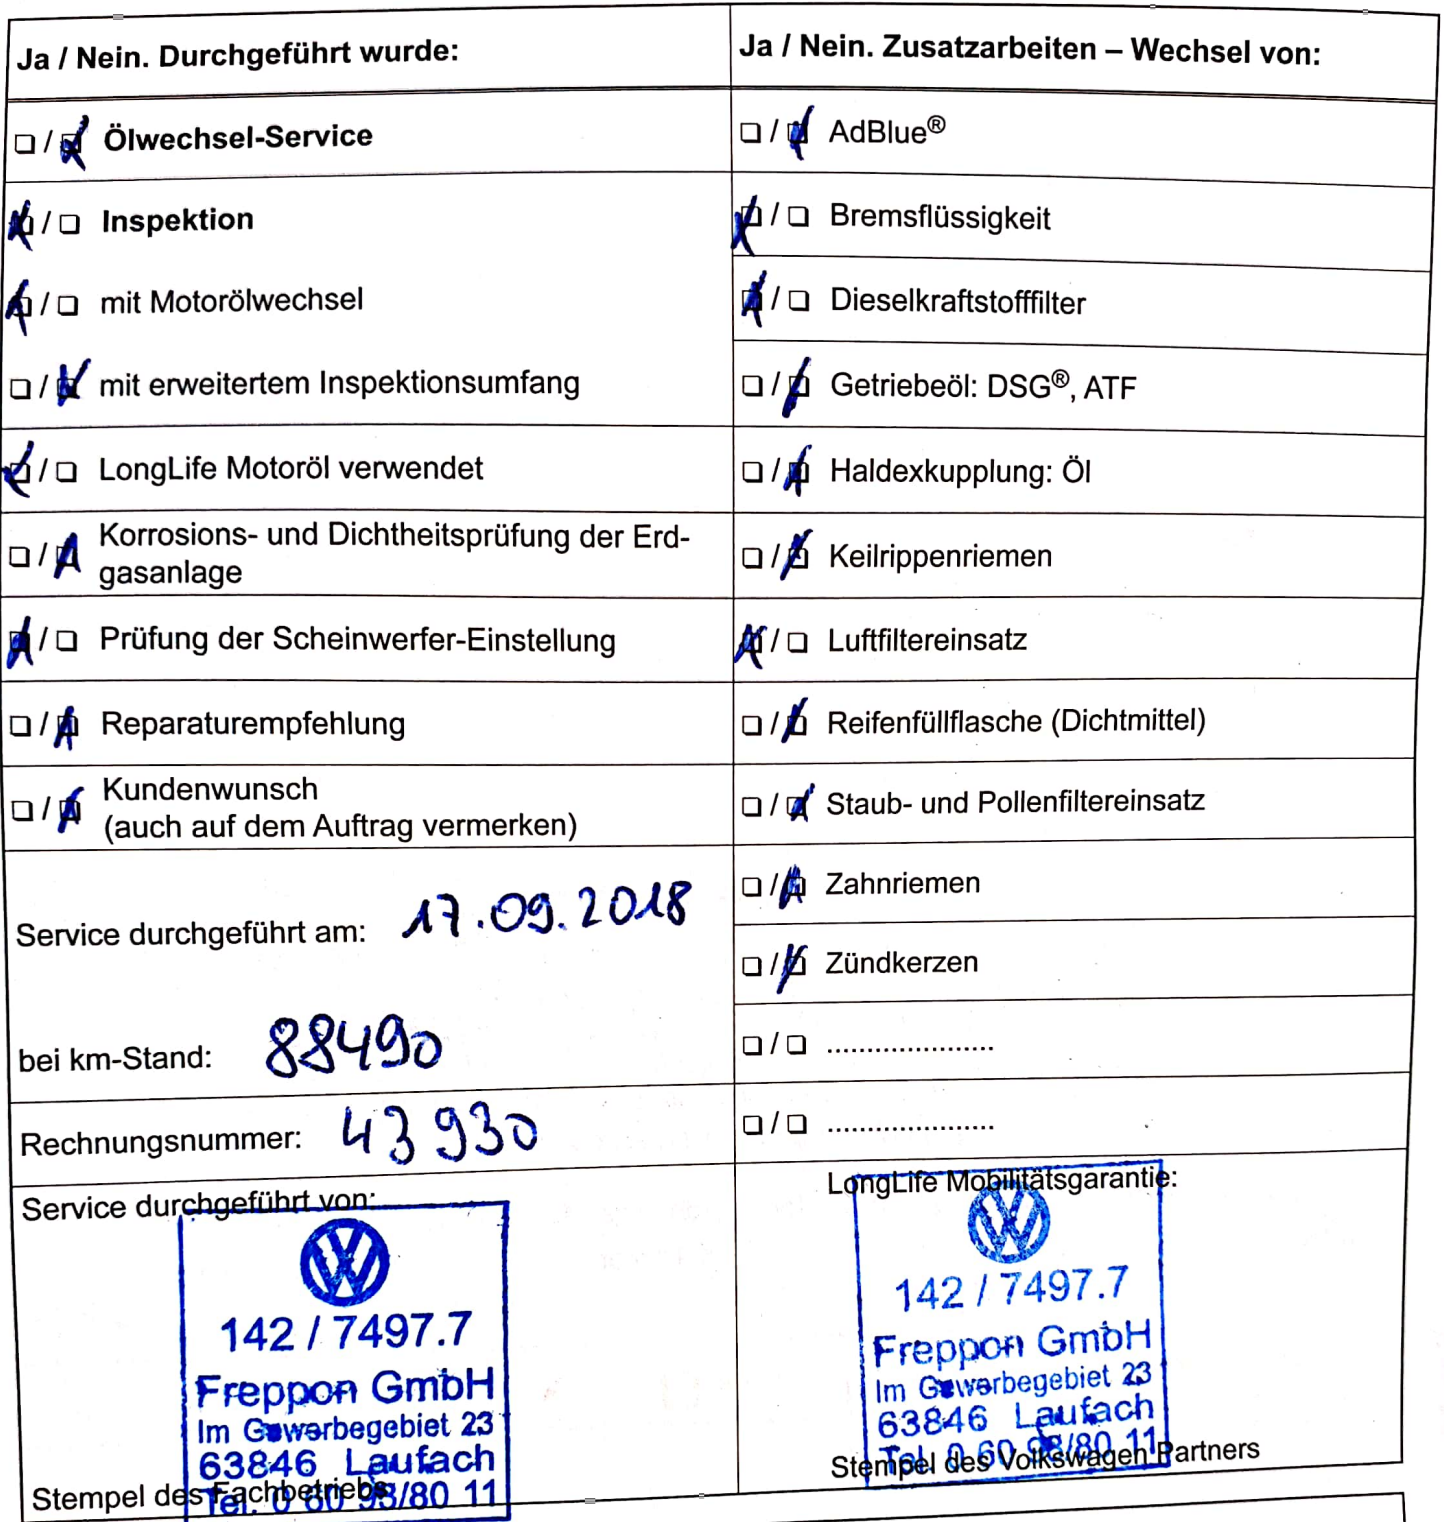 Ja / Nein. Durchgeführt wurde:
❏ / ☒ Ölwechsel-Service
☒ / ❏ Inspektion
☒ / ❏ mit Motorölwechsel
❏ / ☒ mit erweitertem Inspektionsumfang
☒ / ❏ LongLife Motoröl verwendet
❏ / ☒ Korrosions- und Dichtheitsprüfung der Erd-
gasanlage
☒ / ❏ Prüfung der Scheinwerfer-Einstellung
❏ / ☒ Reparaturempfehlung
❏ / ☒ Kundenwunsch
(auch auf dem Auftrag vermerken)
Service durchgeführt am: 17.09.2018
bei km-Stand: 88490
Rechnungsnummer: 43930
Service durchgeführt von:
142 / 7497.7
Freppon GmbH
Im Gewerbegebiet 23
63846 Laufach
Tel. 0 60 93/80 11
Stempel des Fachbetriebs
Ja / Nein. Zusatzarbeiten – Wechsel von:
❏ / ☒ AdBlue®
☒ / ❏ Bremsflüssigkeit
☒ / ❏ Dieselkraftstofffilter
❏ / ☒ Getriebeöl: DSG®, ATF
❏ / ☒ Haldexkupplung: Öl
❏ / ☒ Keilrippenriemen
☒ / ❏ Luftfiltereinsatz
❏ / ☒ Reifenfüllflasche (Dichtmittel)
❏ / ☒ Staub- und Pollenfiltereinsatz
❏ / ☒ Zahnriemen
❏ / ☒ Zündkerzen
❏ / ❏ .....................
❏ / ❏ .....................
LongLife Mobilitätsgarantie:
142 / 7497.7
Freppon GmbH
Im Gewerbegebiet 23
63846 Laufach
Tel. 0 60 93/80 11
Stempel des Volkswagen Partners